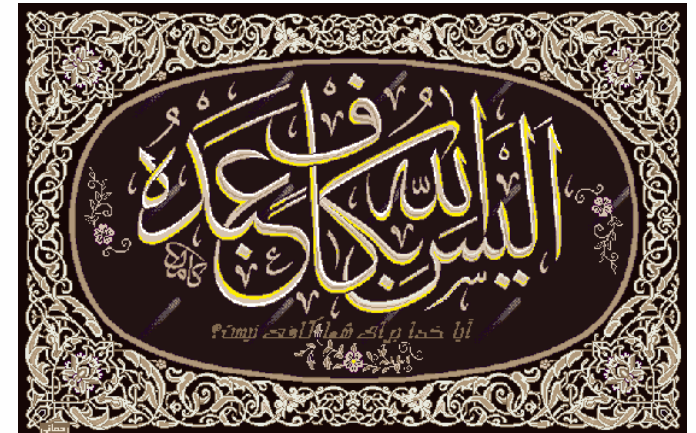 اليس الله بكاف عبده
آیا خدا برای شما کافی نیست؟
رحمانی